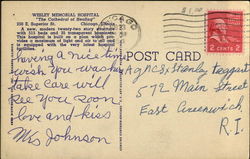 WESLEY MEMORIAL HOSPITAL
"The Cathedral of Healing"
250 E. Superior St. Chicago, Illinois
A new, modern twenty-two story structure
with 525 beds and 75 transient bassinets.
This hospital is built on a plan which pro-
vides a maximum of light and air to all and
is equipped with the very latest hospital
facilities.
CHICAGO
$1.00
POST CARD
2 CENTS 2
having a nice time
wish you was here
take care will
see you soon
love and kiss
Mrs Johnson
Agnes & Stanley Taggart
572 Main Street
East Greenwich
R.I.